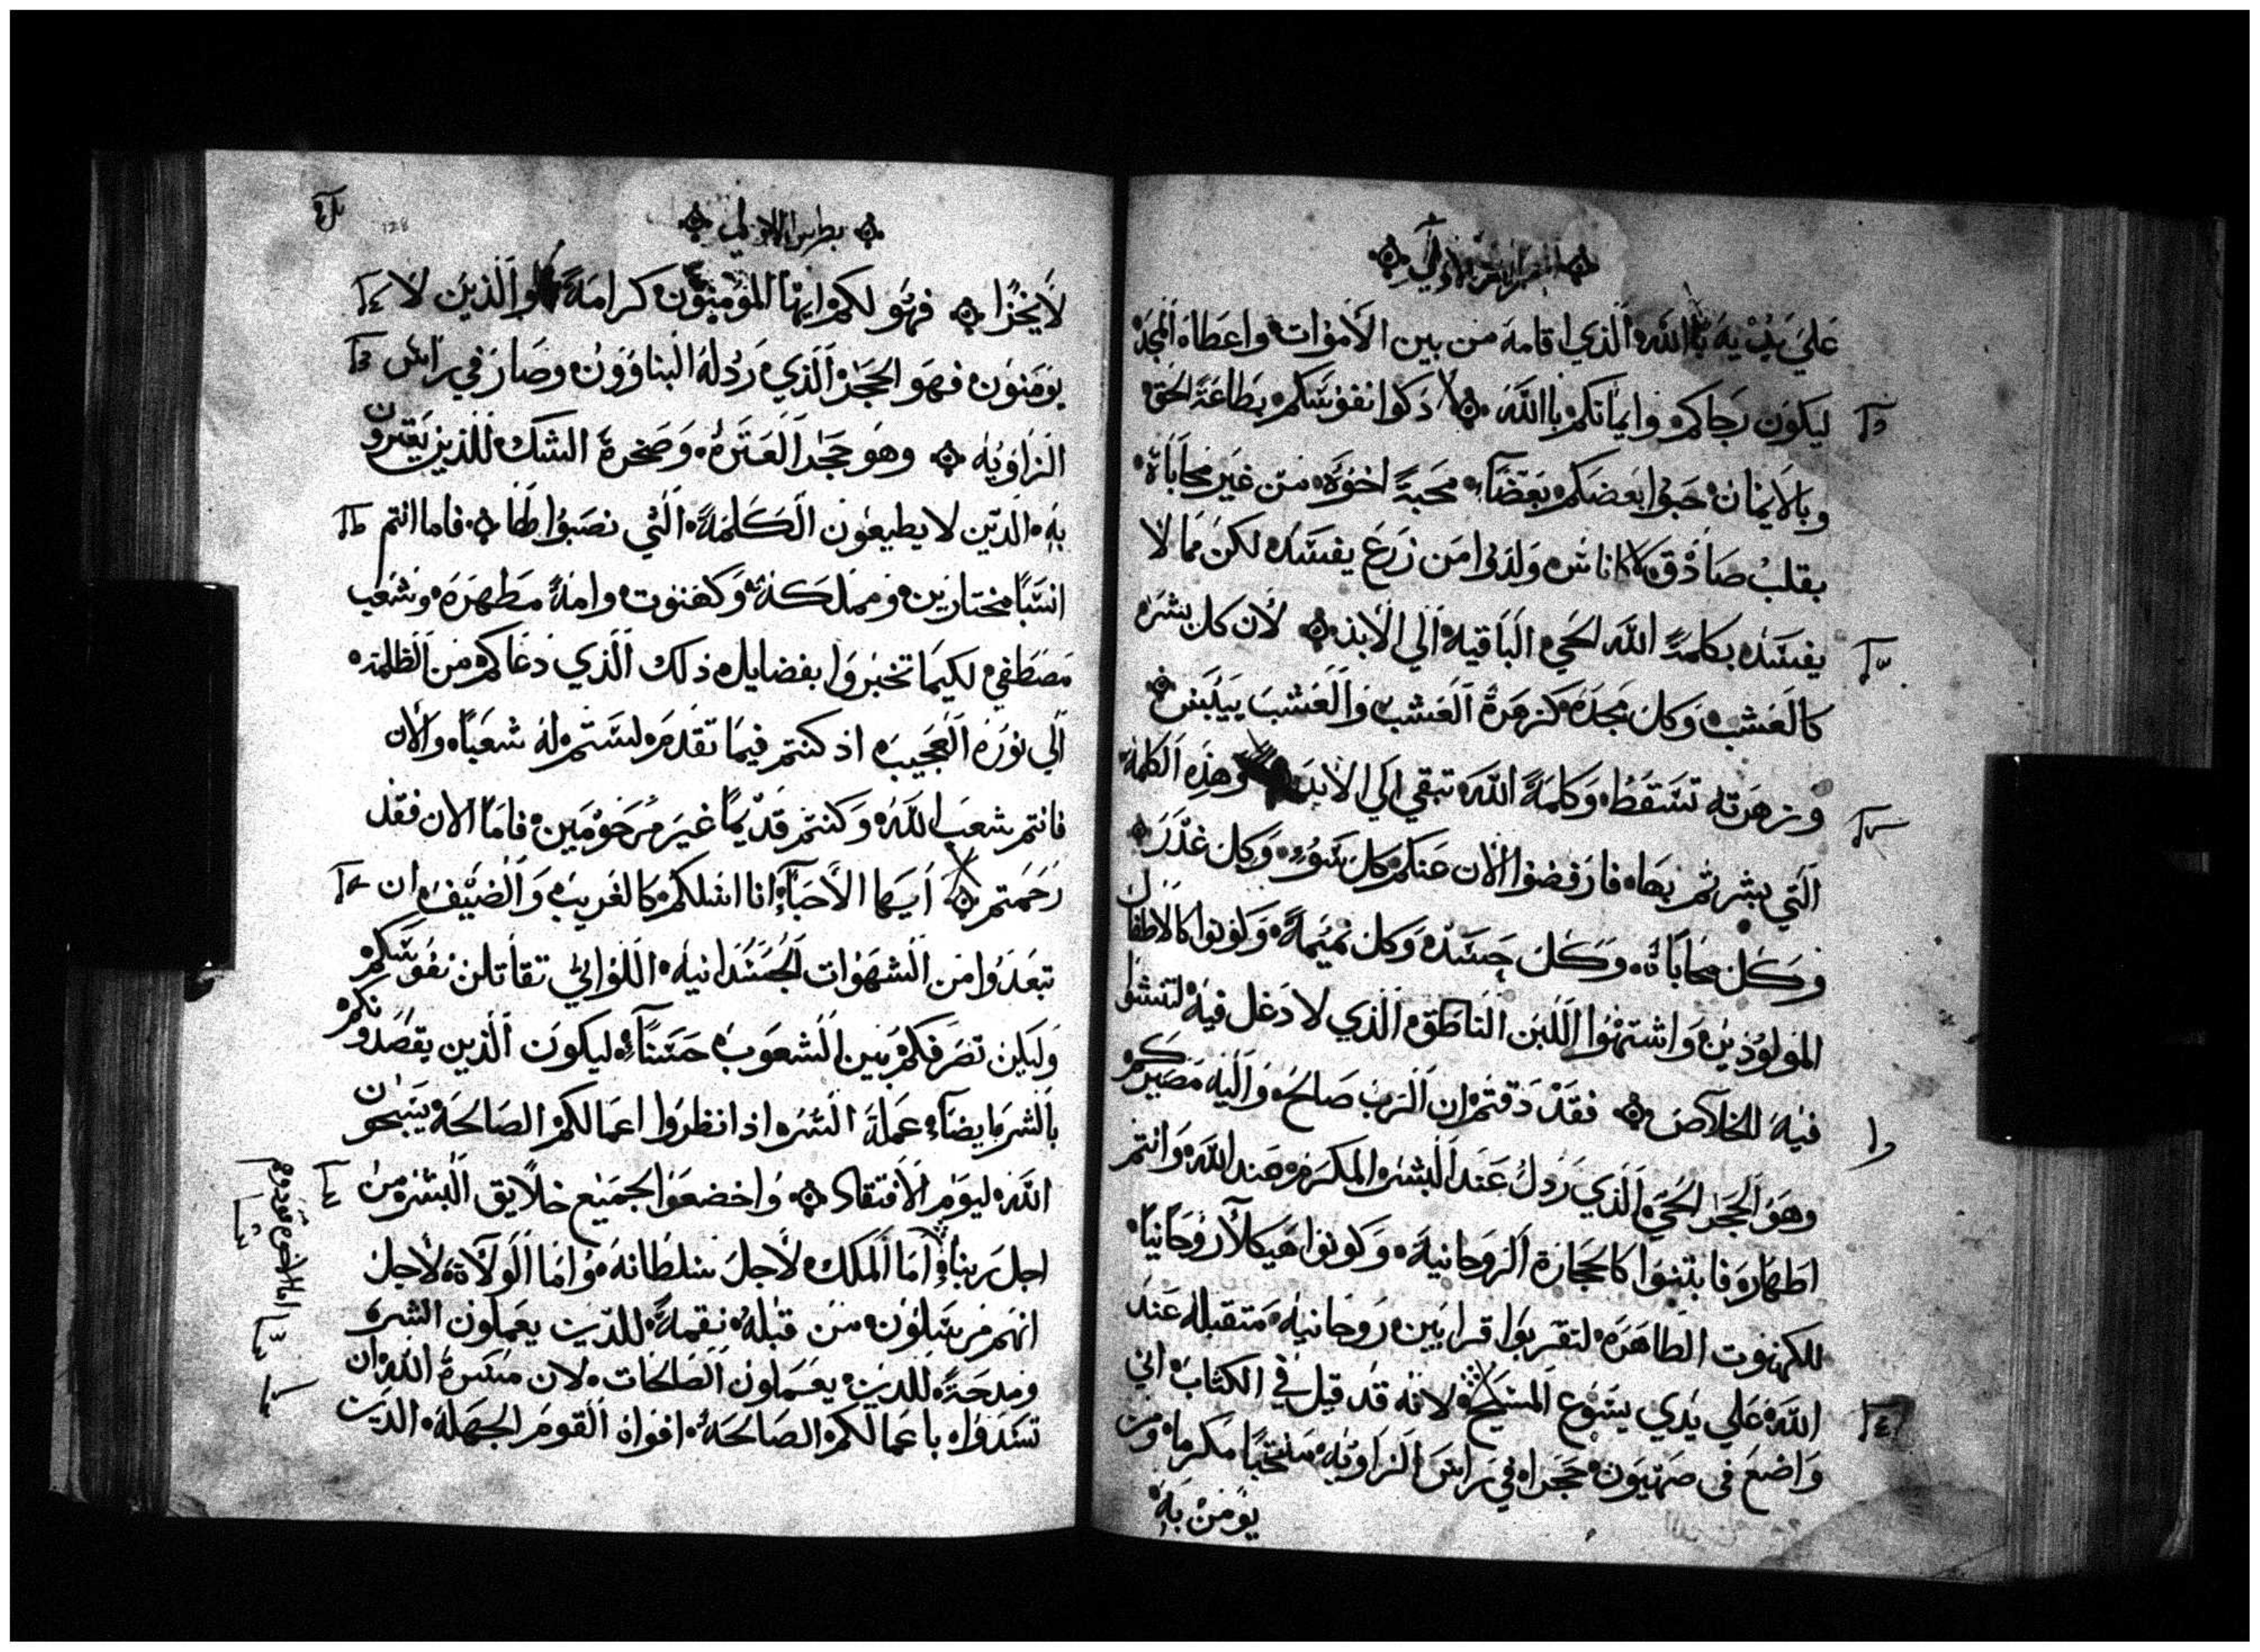 علي يديه بالله الذي اقامه من بين الاموات واعطاه المجد
ليكون رجاكم وايمانكم باالله ذكوا نفوسكم بطاعة الحق
وبالايمان حبوا بعضكم بعضاً محبةً اخوة من غير محاباة
بقلب صادق لاكاناس ولدوا من زرع يفسد لكن مما لا
يفسد بكلمة الله الحي الباقيه الي الابد لان كل بشر
كالعشب وكل مجده كزهرة العشب والعشب ييبس
وزهرته تسقط وكلمة الله تبقي الي الابد وهذه الكلمة
التي بشرتم بها فارفضوا الان عنكم كل سوء وكل غدر
وكل محاباة وكل حسد وكل نميمة وكونوا كالاطفال
المولودين واشتهوا اللبن الناطق الذي لا دغل فيه لتنشوا
فيه للخلاص فقد ذقتم ان الرب صالح واليه مصيركم
وهو الحجر الحي الذي رذل عند البشر المكرم عند الله وانتم
اطهار فابتنوا كالحجارة الروحانية وكونوا هيكلاً روحانياً
للكهنوت الطاهره لتقربوا قرابين روحانيه متقبله عند
الله علي يدي يسوع المسيح لانه قد قيل في الكتاب اني
واضع في صهيون حجراً في راس الزاويه منتخبًا مكرما ومن
يومن به
بطرس الاولي
128
لا يخزا فهو لكم ايها المومنون كرامة والذين لا
يومنون فهو الحجر الذي رذله البناوون وصار في راس
الزاويه وهو حجر العثرة وصخرة الشك للذين يعثرون
به الذين لا يطيعون الكلمة التي نصبوا لها فاما انتم
انسبًا مختارين ومملكة وكهنوت وامة مطهرة وشعب
مصطفي لكيما تخبروا بفضايل ذلك الذي دعاكم من الظلمة
الي نوره العجيب اذ كنتم فيما تقدم لستم له شعباً والان
فانتم شعب الله وكنتم قديماً غير مرحومين فاما الان فقد
رحمتم ايها الاحباء انا اسلكم كالغريب والضيف ان
تبعدوا من الشهوات الجسدانيه اللواتي تقاتلن نفوسكم
وليكن تصرفكم بين الشعوب حسناً ليكون الذين يقصدونكم
بالشر ايضاً عملة الشر اذا نظروا اعمالكم الصالحة يسبحون
الله ليوم الافتقاد واخضعوا لجميع خلايق البشر من
اجل ربنا اما الملك لاجل سلطانه واما الولاة لاجل
انهم مرسلون من قبله نقمة للذين يعملون الشر
ومدحة للذين يعملون الصالحات لان مسرة الله ان
تسدوا باعمالكم الصالحة افواه القوم الجهلة الذين